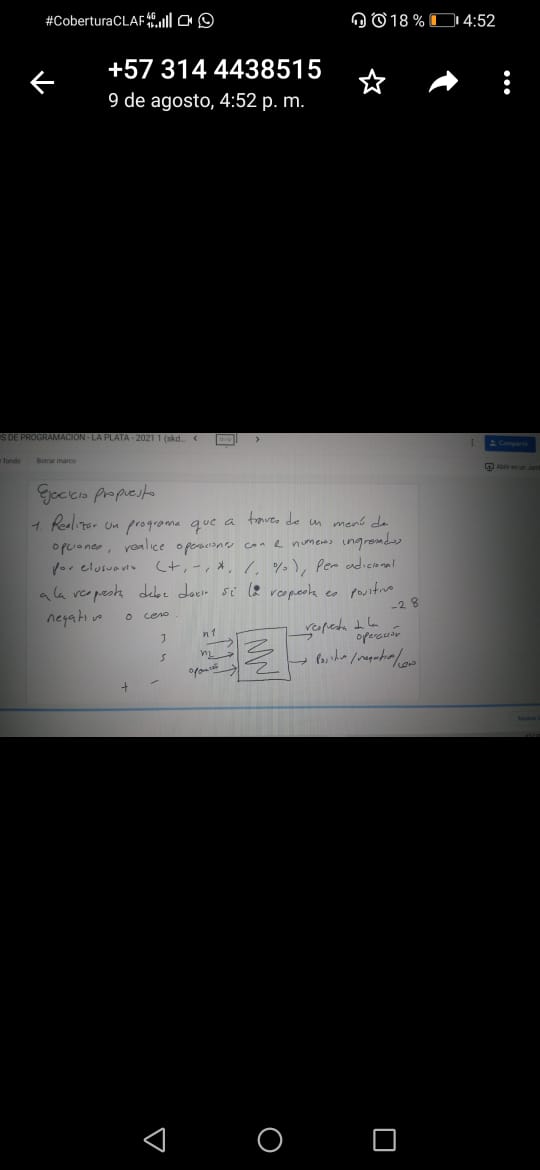 #CoberturaCLAR 4G 18 % 4:52
+57 314 4438515
9 de agosto, 4:52 p. m.
S DE PROGRAMACIÓN - LA PLATA - 2021 1 (skd...
Compartir
fondo Borrar marco
Ejercicio propuesto
1. Realizar un programa que a traves de un menú de
opciones, realice operaciones con 2 numeros ingresados
por el usuario (+, -, *, /, %), Pero adicional
a la respuesta debe decir si la respuesta es positivo
negativo o cero.
-2 8
3 n1 respuesta de la operación
5 n2
opción Positivo/negativo/cero
+ -